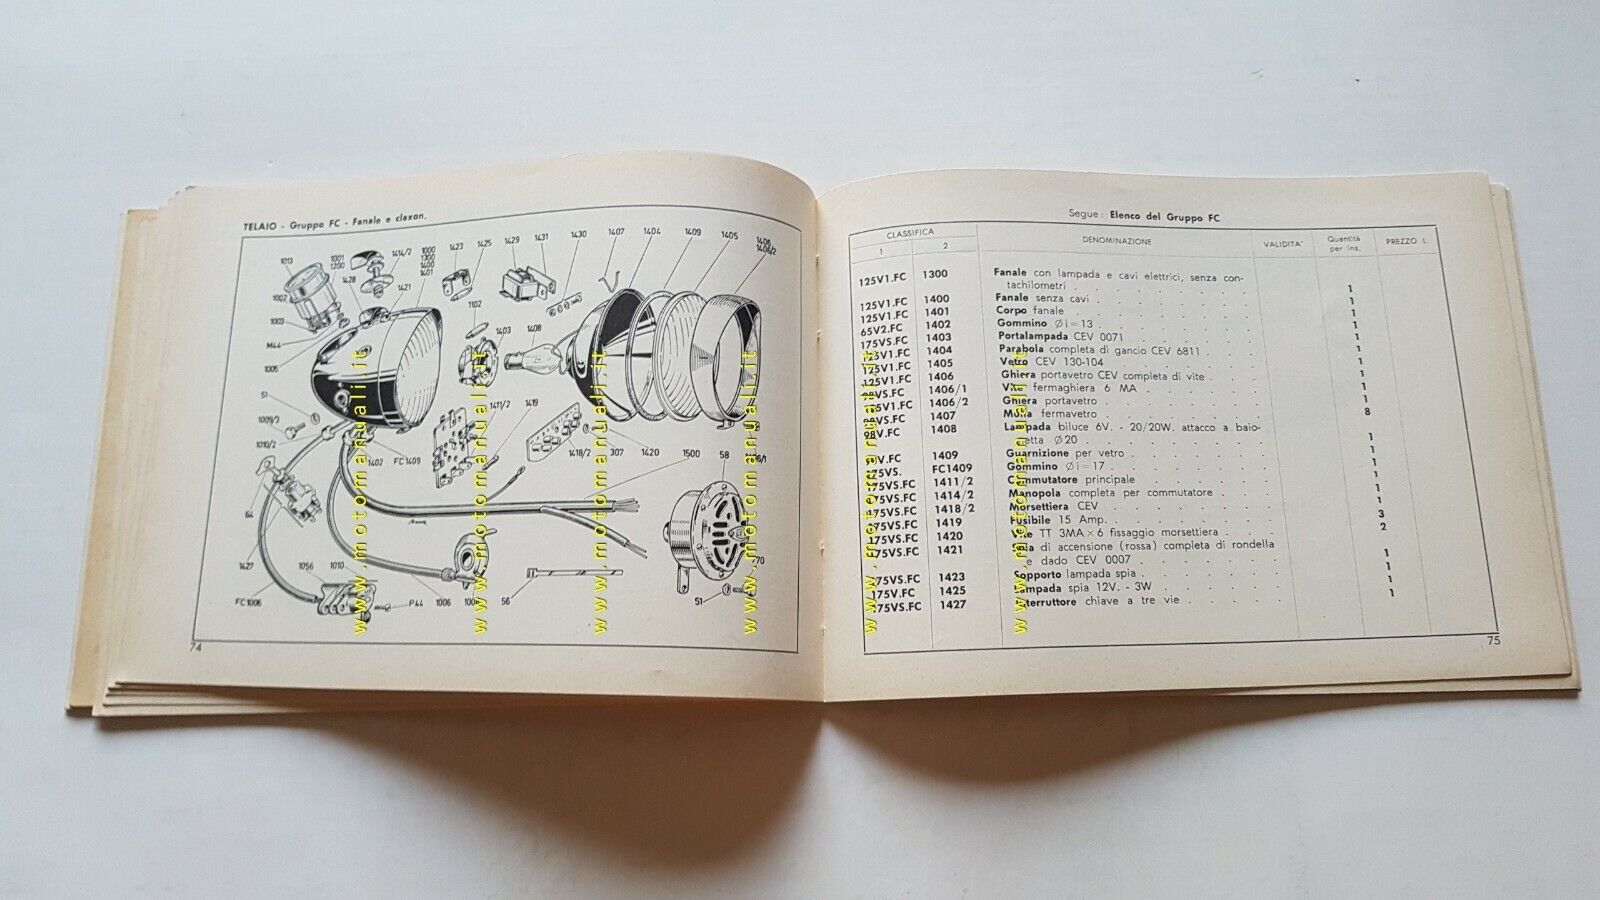 TELAIO - Gruppo FC - Fanale e claxon.
1013
1001
1200
1414/2
1000
1300
1400
1401
1423
1425
1429
1431
1430
1407
1404
1409
1405
1406
1406/2
1428
1421
1002
1003
M44
1005
1102
1403
1408
51
1009/3
1010/2
1402
FC1409
1411/2
1419
1418/2
307
1420
1500
58
64
1427
1056
1010
FC1006
P44
1006
56
51
70
74
www.motomanuali.it
www.motomanuali.it
www.motomanuali.it
www.motomanuali.it
Segue: Elenco del Gruppo FC
CLASSIFICA
1 2
DENOMINAZIONE
VALIDITA'
Quantità
per ins.
PREZZO L.
125V1.FC 1300 Fanale con lampada e cavi elettrici, senza con-
tachilometri 1
125V1.FC 1400 Fanale senza cavi 1
125V1.FC 1401 Corpo fanale 1
65V2.FC 1402 Gommino Øi=13 1
175VS.FC 1403 Portalampada CEV 0071 1
125V1.FC 1404 Parabola completa di gancio CEV 6811 1
125V1.FC 1405 Vetro CEV 130-104 1
125V1.FC 1406 Ghiera portavetro CEV completa di vite 1
98VS.FC 1406/1 Vite fermaghiera 6 MA 1
125V1.FC 1406/2 Ghiera portavetro 1
98VS.FC 1407 Molla fermavetro 8
98V.FC 1408 Lampada biluce 6V. - 20/20W. attacco a baio-
netta Ø20 1
1409 Guarnizione per vetro 1
175VS. FC1409 Gommino Øi=17 1
175VS.FC 1411/2 Commutatore principale 1
175VS.FC 1414/2 Manopola completa per commutatore 1
175VS.FC 1418/2 Morsettiera CEV 1
175VS.FC 1419 Fusibile 15 Amp. 3
175VS.FC 1420 Vite TT 3MA×6 fissaggio morsettiera 2
175VS.FC 1421 Spia di accensione (rossa) completa di rondella
e dado CEV 0007 1
175VS.FC 1423 Supporto lampada spia 1
175V.FC 1425 Lampada spia 12V. - 3W 1
175VS.FC 1427 Interruttore chiave a tre vie 1
75
www.motomanuali.it
www.motomanuali.it